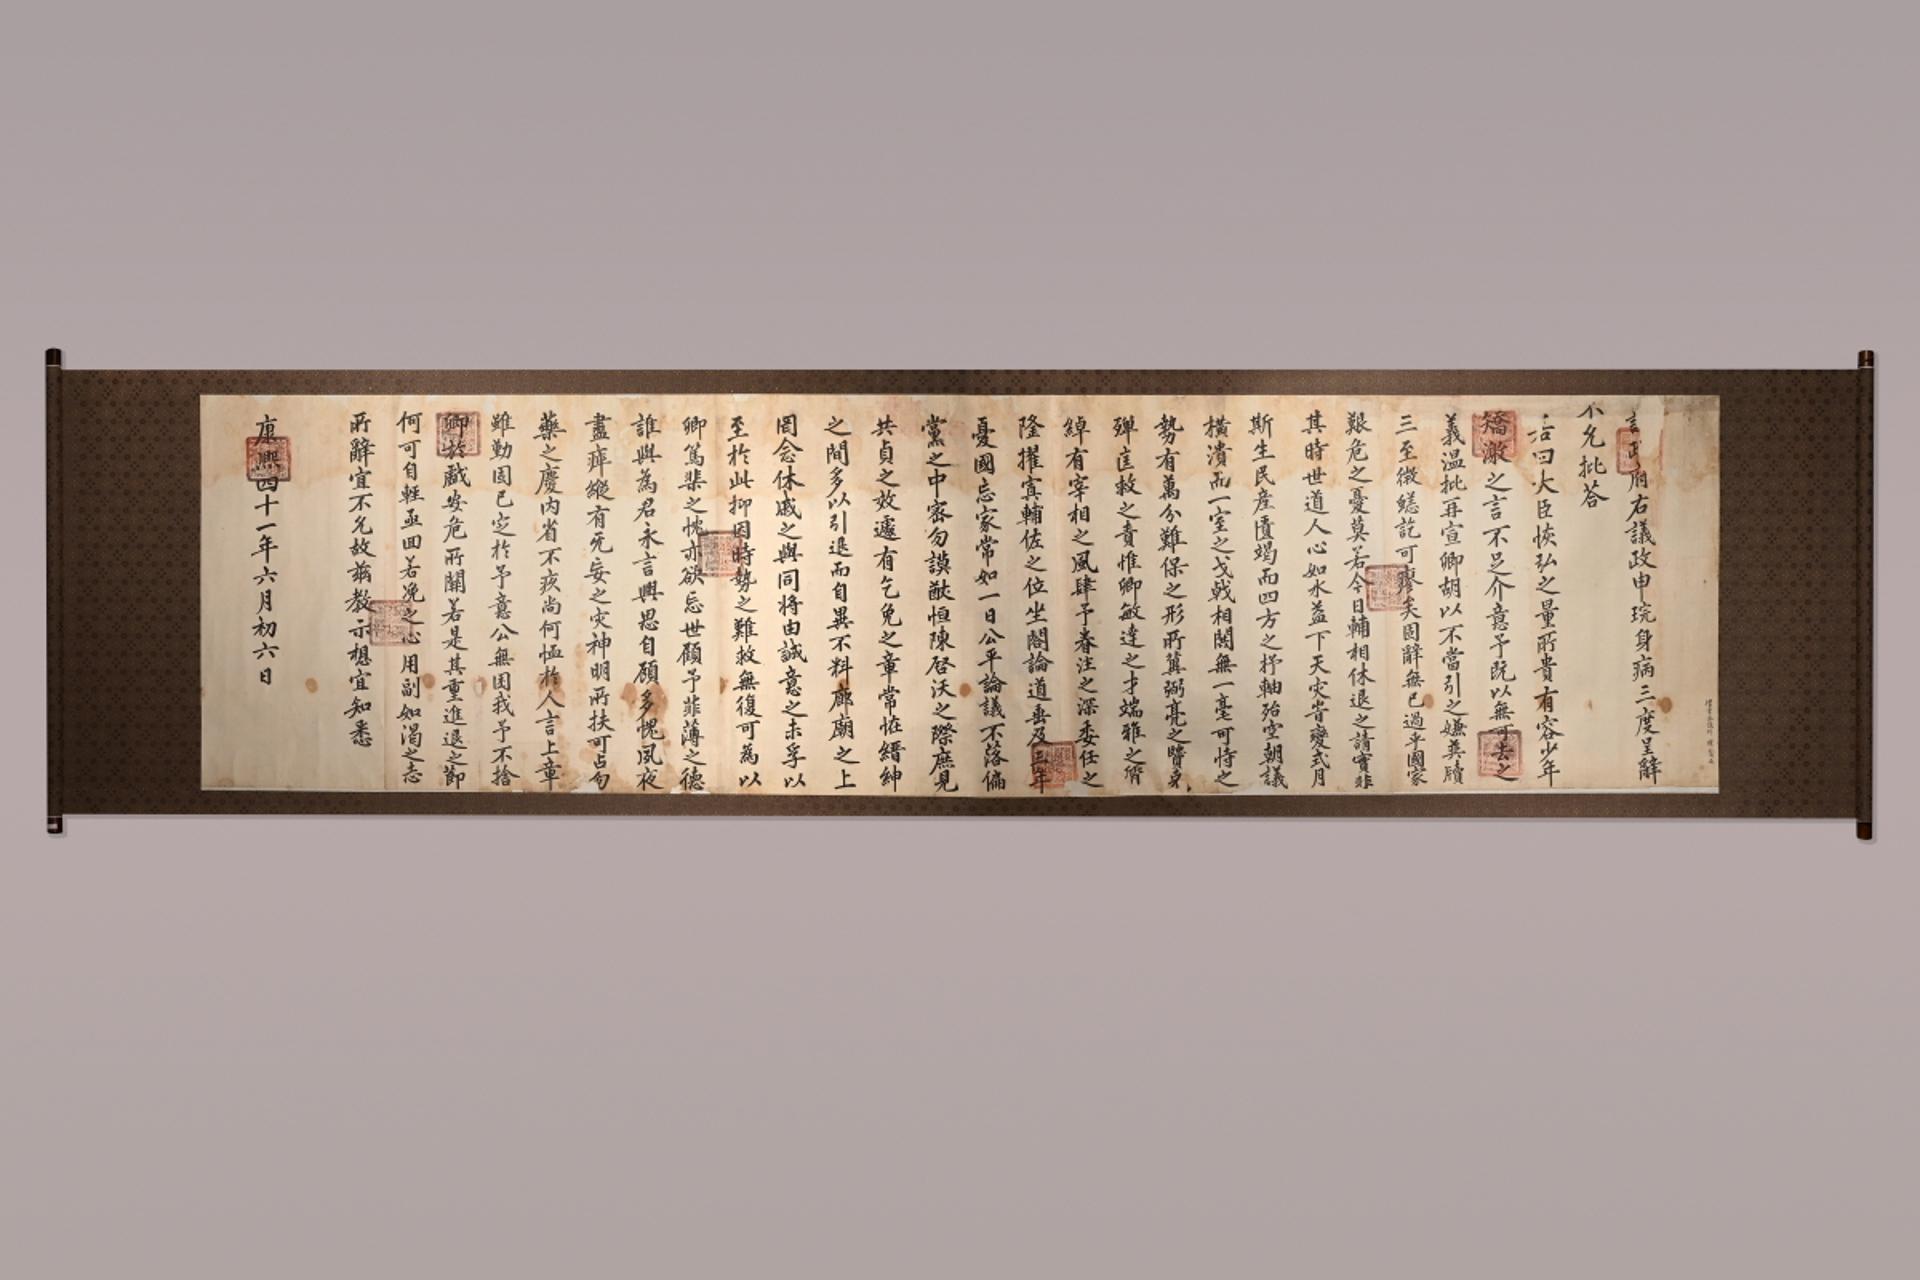 議政府右議政申琓身病三度呈辭
不允批答
若曰大臣恢弘之量所貴有容少年
矯激之言不足介意予既以無可去之
義溫批再宣卿胡以不當引之嫌莫牘
三至微繾訖可廖矣固辭無已過乎國家
艱危之憂莫若今日輔相休退之請實非
其時世道人心如水益下天灾眚變式月
斯生民産匱竭而四方之抒軸殆空朝議
橫潰而一室之戈戟相鬩無一毫可恃之
勢有萬分難保之形所冀弼亮之賢
殫匡救之責惟卿敏達之才端雅之
綽有宰相之風肆予眷注之深委任之
隆擢寘輔佐之位坐閤論道垂及三年
憂國忘家常如一日公平論議不落偏
黨之中密勿謨猷恒陳啓沃之際庶見
共貞之效遽有乞免之章常恠縉紳
之間多以引退而自異不料廊廟之上
罔念休戚之與同將由誠意之未孚以
至於此抑因時勢之難救無復可為以
卿篤棐之忱亦欲忘世顧予菲薄之德
誰與為君永言興思自顧多愧夙夜
盡瘁縱有旡妄之灾神明所扶可占勿
藥之慶內省不疚尚何恤於人言上章
雖勤固已定於予意公無困我予不捨
卿於戲安危所關若是其重進退之節
何可自輕亟回若凂之心用副如渴之志
所辭宜不允故玆教示想宜知悉
康熙四十一年六月初六日